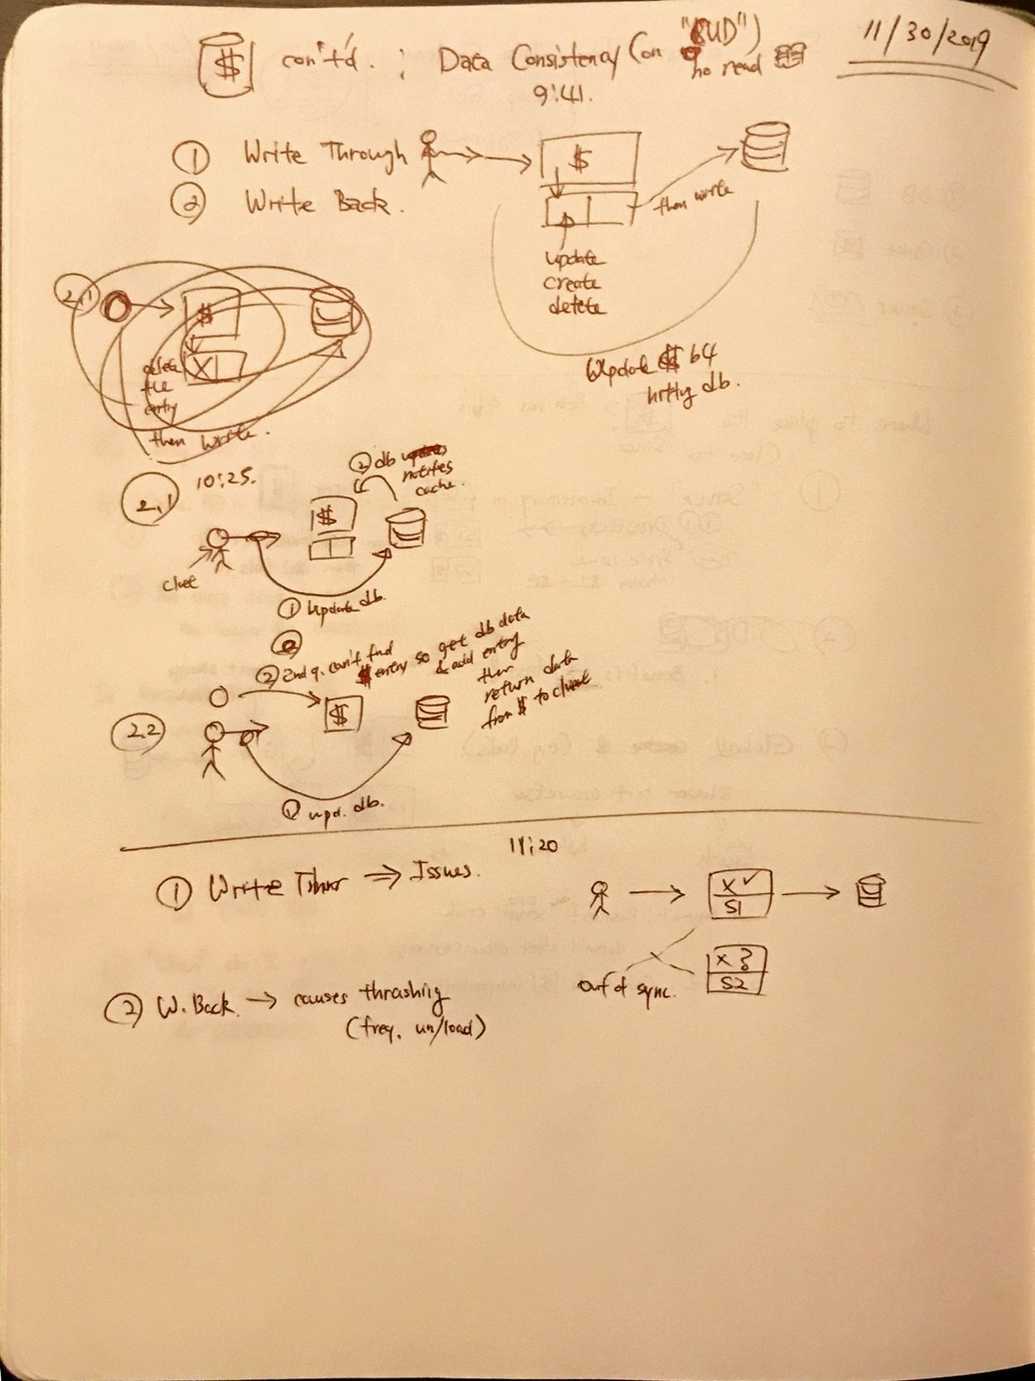 11/30/2019
$ con't'd. : Data Consistency (on "CUD")
no read
9:41.
① Write Through
$
then write
② Write Back.
update
create
delete
Update $ b4
hitting db.
2.1
$
X
delete
the
entry
then write.
2.1
10:25.
② db
notifies
cache.
$
client
① Update db.
② 2nd q. can't find
$ entry so get db data
& add entry
then
return data
from $ to client
2.2
$
① upd. db.
11:20
① Write Thru ⇒ Issues.
X ✓
S1
X ?
S2
out of sync.
② W. Back → causes thrashing
(freq. un/load)